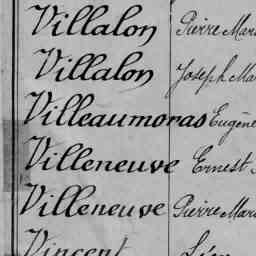 Villalon Pierre Mar
Villalon Joseph Ma
Villeaumoras Eugène
Villeneuve Ernest
Villeneuve Pierre Mar
Vincent Léon